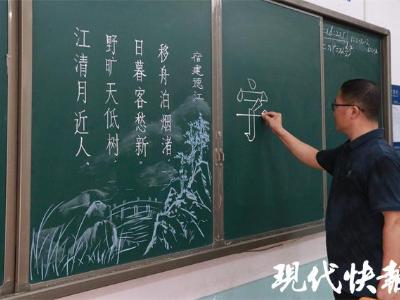 宿建德江
移舟泊烟渚
日暮客愁新
野旷天低树，
江清月近人。
字
现代快報